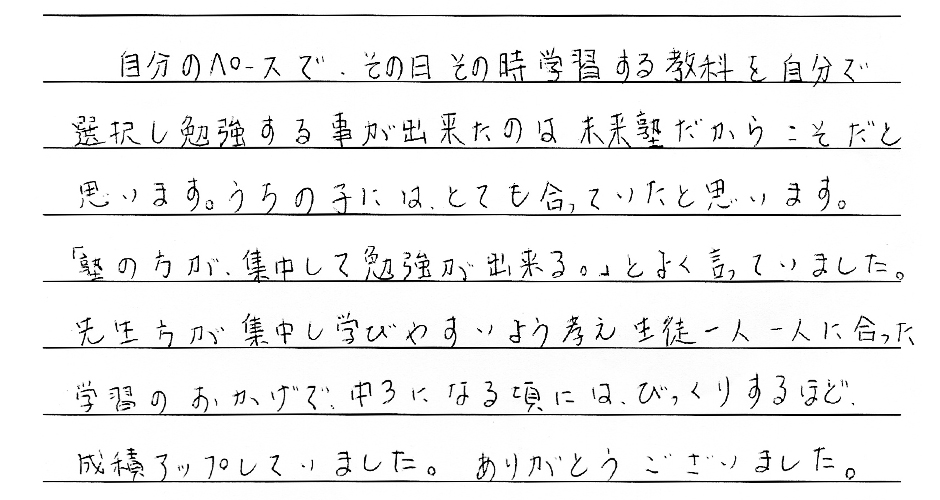 自分のペースで、その日その時学習する教科を自分で
選択し勉強する事が出来たのは未来塾だからこそだと
思います。うちの子には、とても合っていたと思います。
「塾の方が、集中して勉強が出来る。」とよく言っていました。
先生方が集中し学びやすいよう考え生徒一人一人に合った
学習のおかげで、中3になる頃には、びっくりするほど、
成績アップしていました。 ありがとうございました。